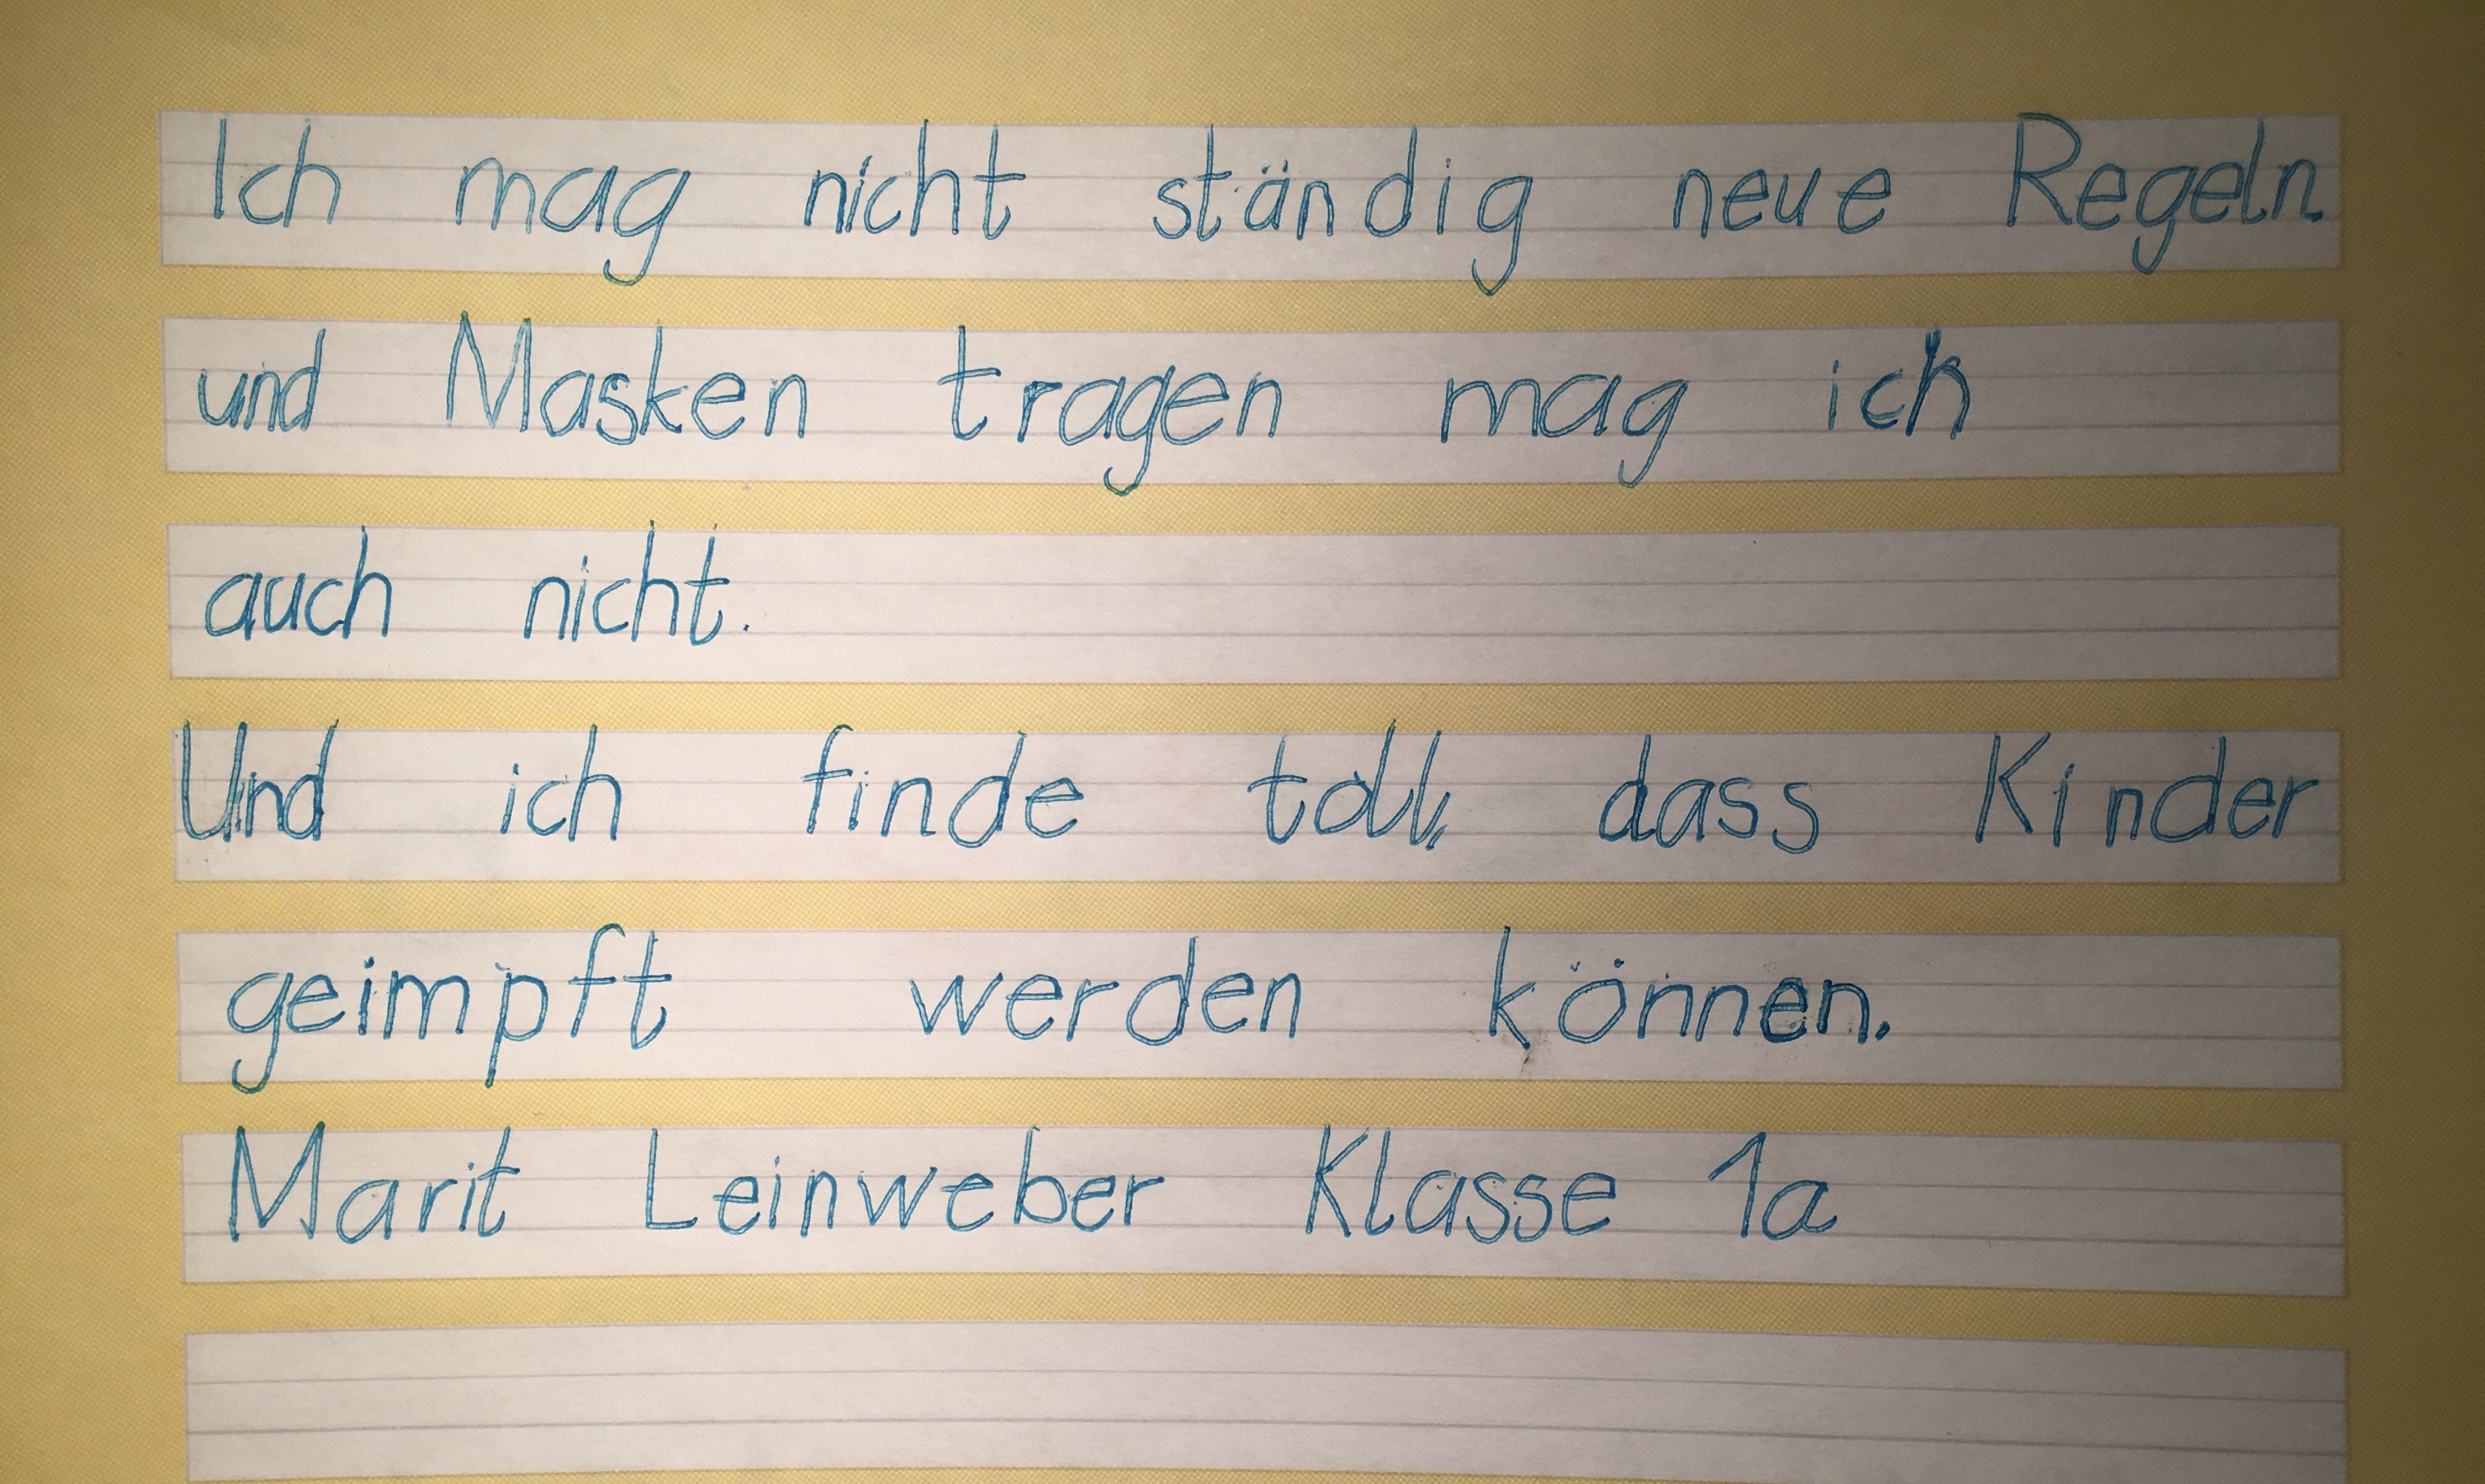 Ich mag nicht ständig neue Regeln.
und Masken tragen mag ich
auch nicht.
Und ich finde toll, dass Kinder
geimpft werden können.
Marit Leinweber Klasse 1a